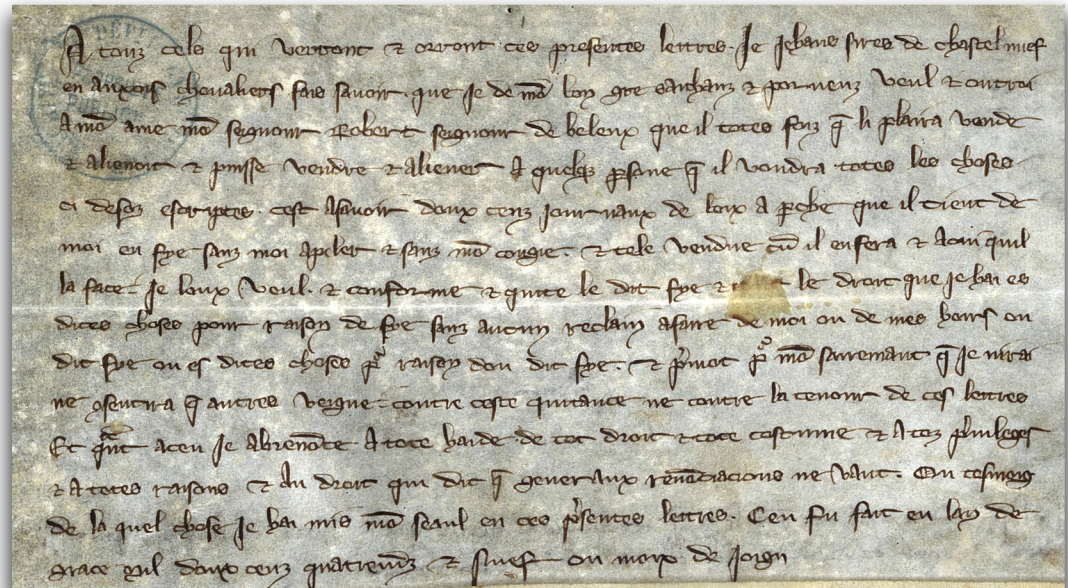 A touz cels qui verront & orront ces presentes lettres. Je Jehans sires de chastel nuef
en auxois chevaliers fais savoir que Je de mō bon gre sachanz & porveuz veul & outroi
A mō ame mō seignour Robert seignour de beleux que il totes foiz q̄ li plaira vende
& alienoit & puisse vendre & aliener A quelq; ꝑsone q̄ il vondra totes les choses
ci desoz escriptes. cest asavoir doux cenz journaux de boix a ꝑche que il tient de
moi en fye sanz moi apeler & sanz mō congie. & tele vendue cū il en fera & a cui quil
la face: Je loux veul. & conferme & quite le dit fye & le droit que Je hai es
dites choses pour raison de fye sanz aucun reclain a faire de moi ou de mes hoirs ou
dit fye ou es dites choses pͬ raison dou dit fye. & ꝑmot ꝑ mō sairemant q̄ Je nirai
ne ꝯsentirai q̄ autres veigne: contre ceste quitance ne contre la tenour de ces lettres
Et qͣnt a ceu Je abrenōce A tote haide de tot droit & tote costume & A toz pͥvileges
& a totes raisons & Au droit qui dit q̄ generaux renōciacions ne vaut. On tesmoig
de la quel chose Je hai mis mō seaul en ces p̄sentes lettres. Ceu fu fait en lan de
grace mil doux cenz quatrevinz & nuef ou mois de Joign